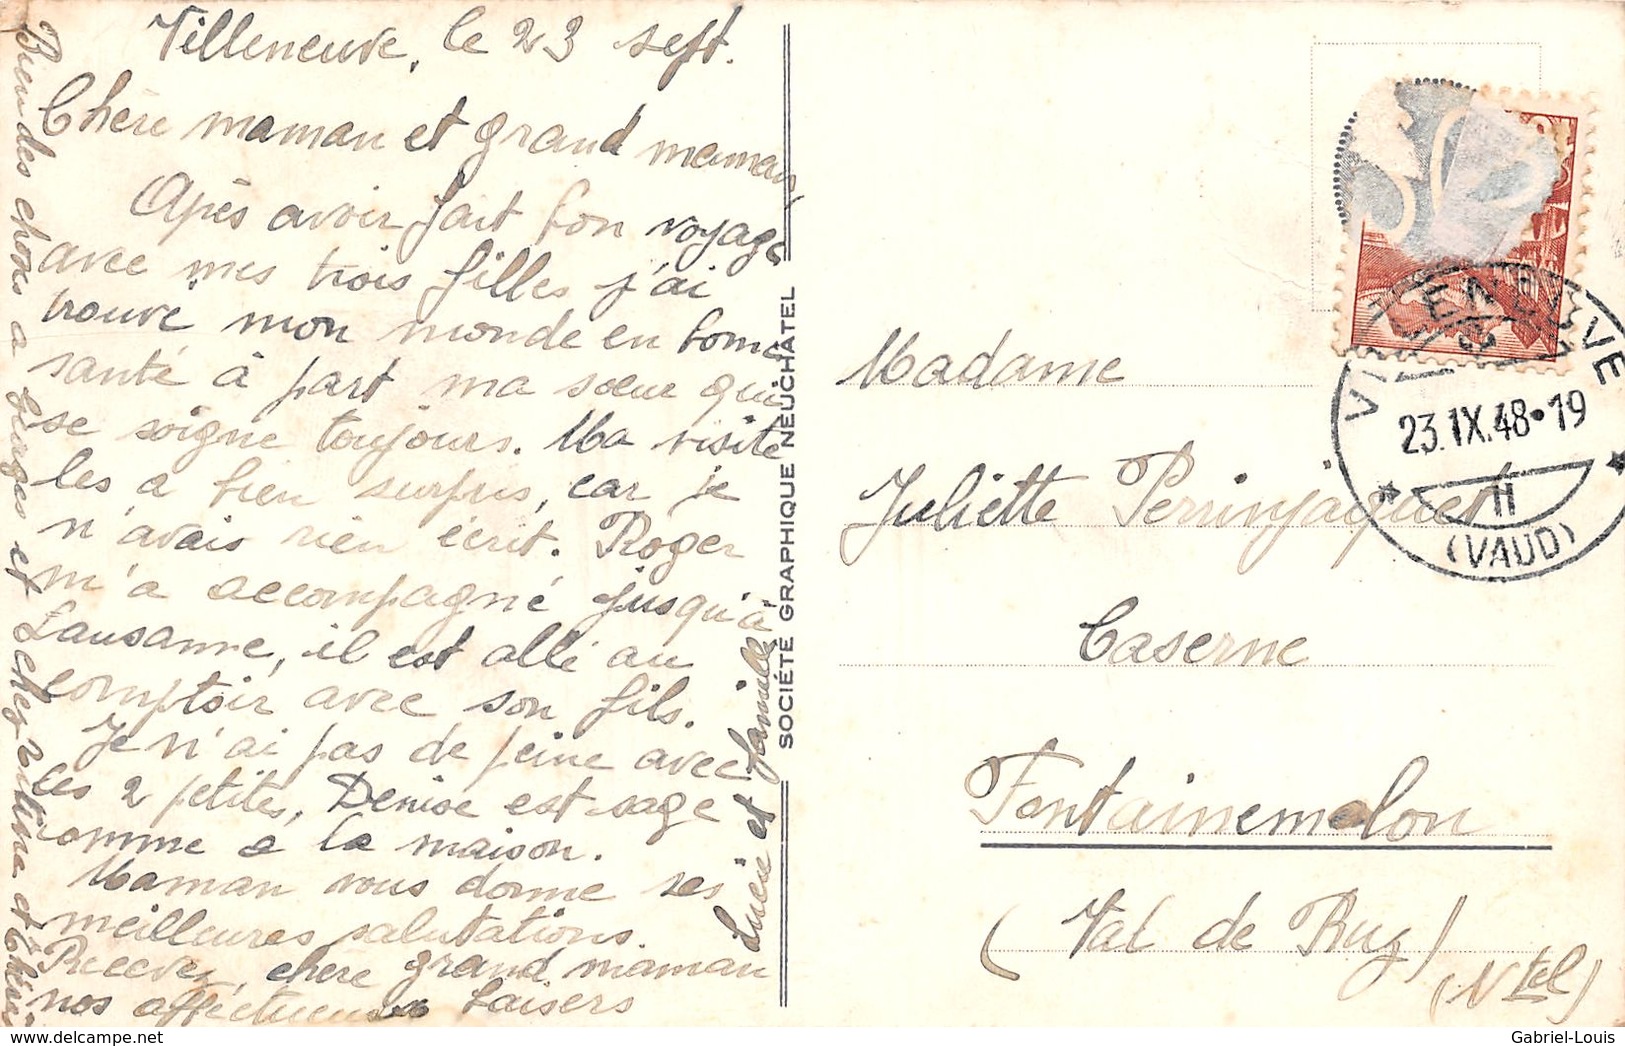 Villeneuve, le 23 sept.
Chère maman et grand maman,
Après avoir fait bon voyage
avec mes trois filles j'ai
trouvé mon monde en bonne
santé à part ma sœur qui
se soigne toujours. Ma visite
les a bien surpris, car je
n'avais rien écrit. Roger
m'a accompagné jusqu'à
Lausanne, il est allé au
comptoir avec son fils.
Je n'ai pas de peine avec
les 2 petites, Denise est sage
comme a la maison.
Maman vous donne ses
meilleures salutations.
Recevez, chère grand maman
nos affectueux baisers
Lucie et famille
Bien des choses a Georges et chez
SOCIÉTÉ GRAPHIQUE NEUCHATEL
VILLENEUVE
23.IX.48•19
II
(VAUD)
Madame
Juliette Perrinjaquet
Caserne
Fontainemelon
(Val de Ruz)
(Ntel)
www.delcampe.net
Gabriel-Louis